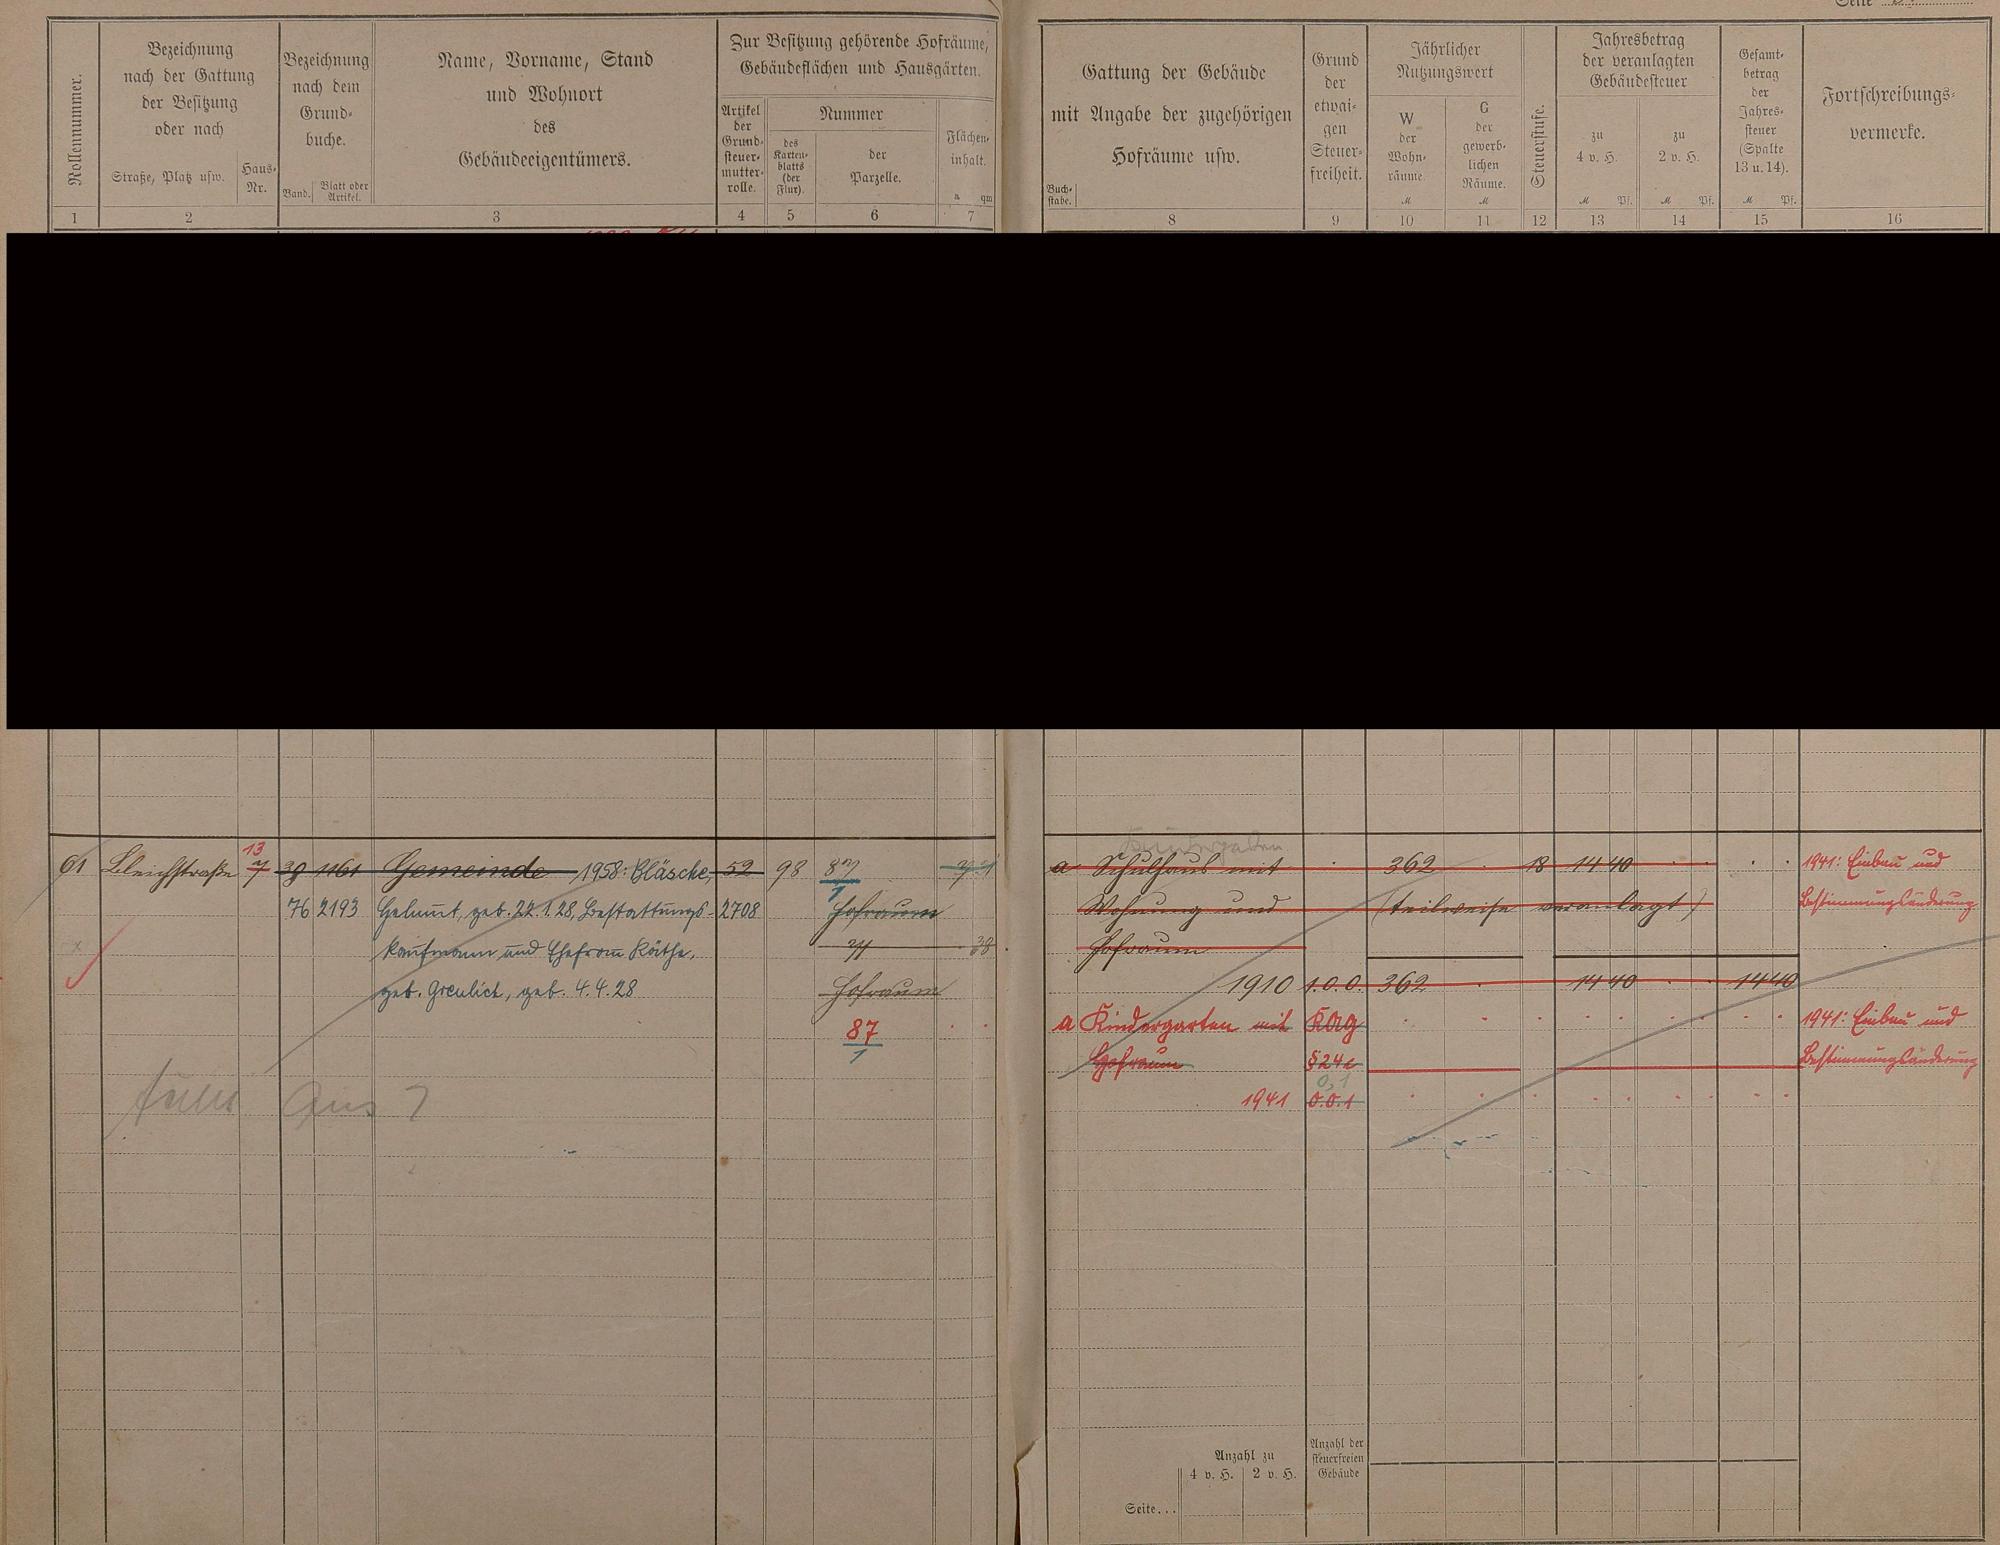 Seite
Rollennummer.
Bezeichnung
nach der Gattung
der Besitzung
oder nach
Straße, Platz usw.
Haus-
Nr.
Bezeichnung
nach dem
Grund-
buche.
Band.
Blatt oder
Artikel.
Name, Vorname, Stand
und Wohnort
des
Gebäudeeigentümers.
Zur Besitzung gehörende Hofräume,
Gebäudeflächen und Hausgärten.
Artikel
der
Grund-
steuer-
mutter-
rolle.
Nummer
des
Karten-
blatts
(der
Flur).
der
Parzelle.
Flächen-
inhalt.
a qm
1 2 3 4 5 6 7
Gattung der Gebäude
mit Angabe der zugehörigen
Hofräume usw.
Buch-
stabe.
Grund
der
etwai-
gen
Steuer-
freiheit.
Jährlicher
Nutzungswert
W
der
Wohn-
räume.
M
G
der
gewerb-
lichen
Räume.
M
Steuerstufe.
Jahresbetrag
der veranlagten
Gebäudesteuer
zu
4 v. H.
M Pf.
zu
2 v. H.
M Pf.
Gesamt-
betrag
der
Jahres-
steuer
(Spalte
13 u. 14).
M Pf.
Fortschreibungs-
vermerke.
8 9 10 11 12 13 14 15 16
13
61 Bleichstraße 7 39 1161 Gemeinde 1958: Bläsche, 52 98 87
1
76 2193 Helmut, geb. 22.1.28, Bestattungs- 2708 Hofraum
kaufmann und Ehefrau Käthe, 38
geb. Greulich, geb. 4.4.28 Hofraum
87
1
aus ?
Kindergarten
a Schulhaus mit 362 18 14 40 1941: Einbau und
Wohnung und (teilweise veranlagt) Bestimmungsänderung
Hofraum
1910 1.0.0. 362 14 40 14 40
a Kindergarten mit KAG 1941: Einbau und
Hofraum § 24c Bestimmungsänderung
0,1
1941 0.0.1
Anzahl zu
4 v. H. 2 v. H.
Anzahl der
steuerfreien
Gebäude
Seite...